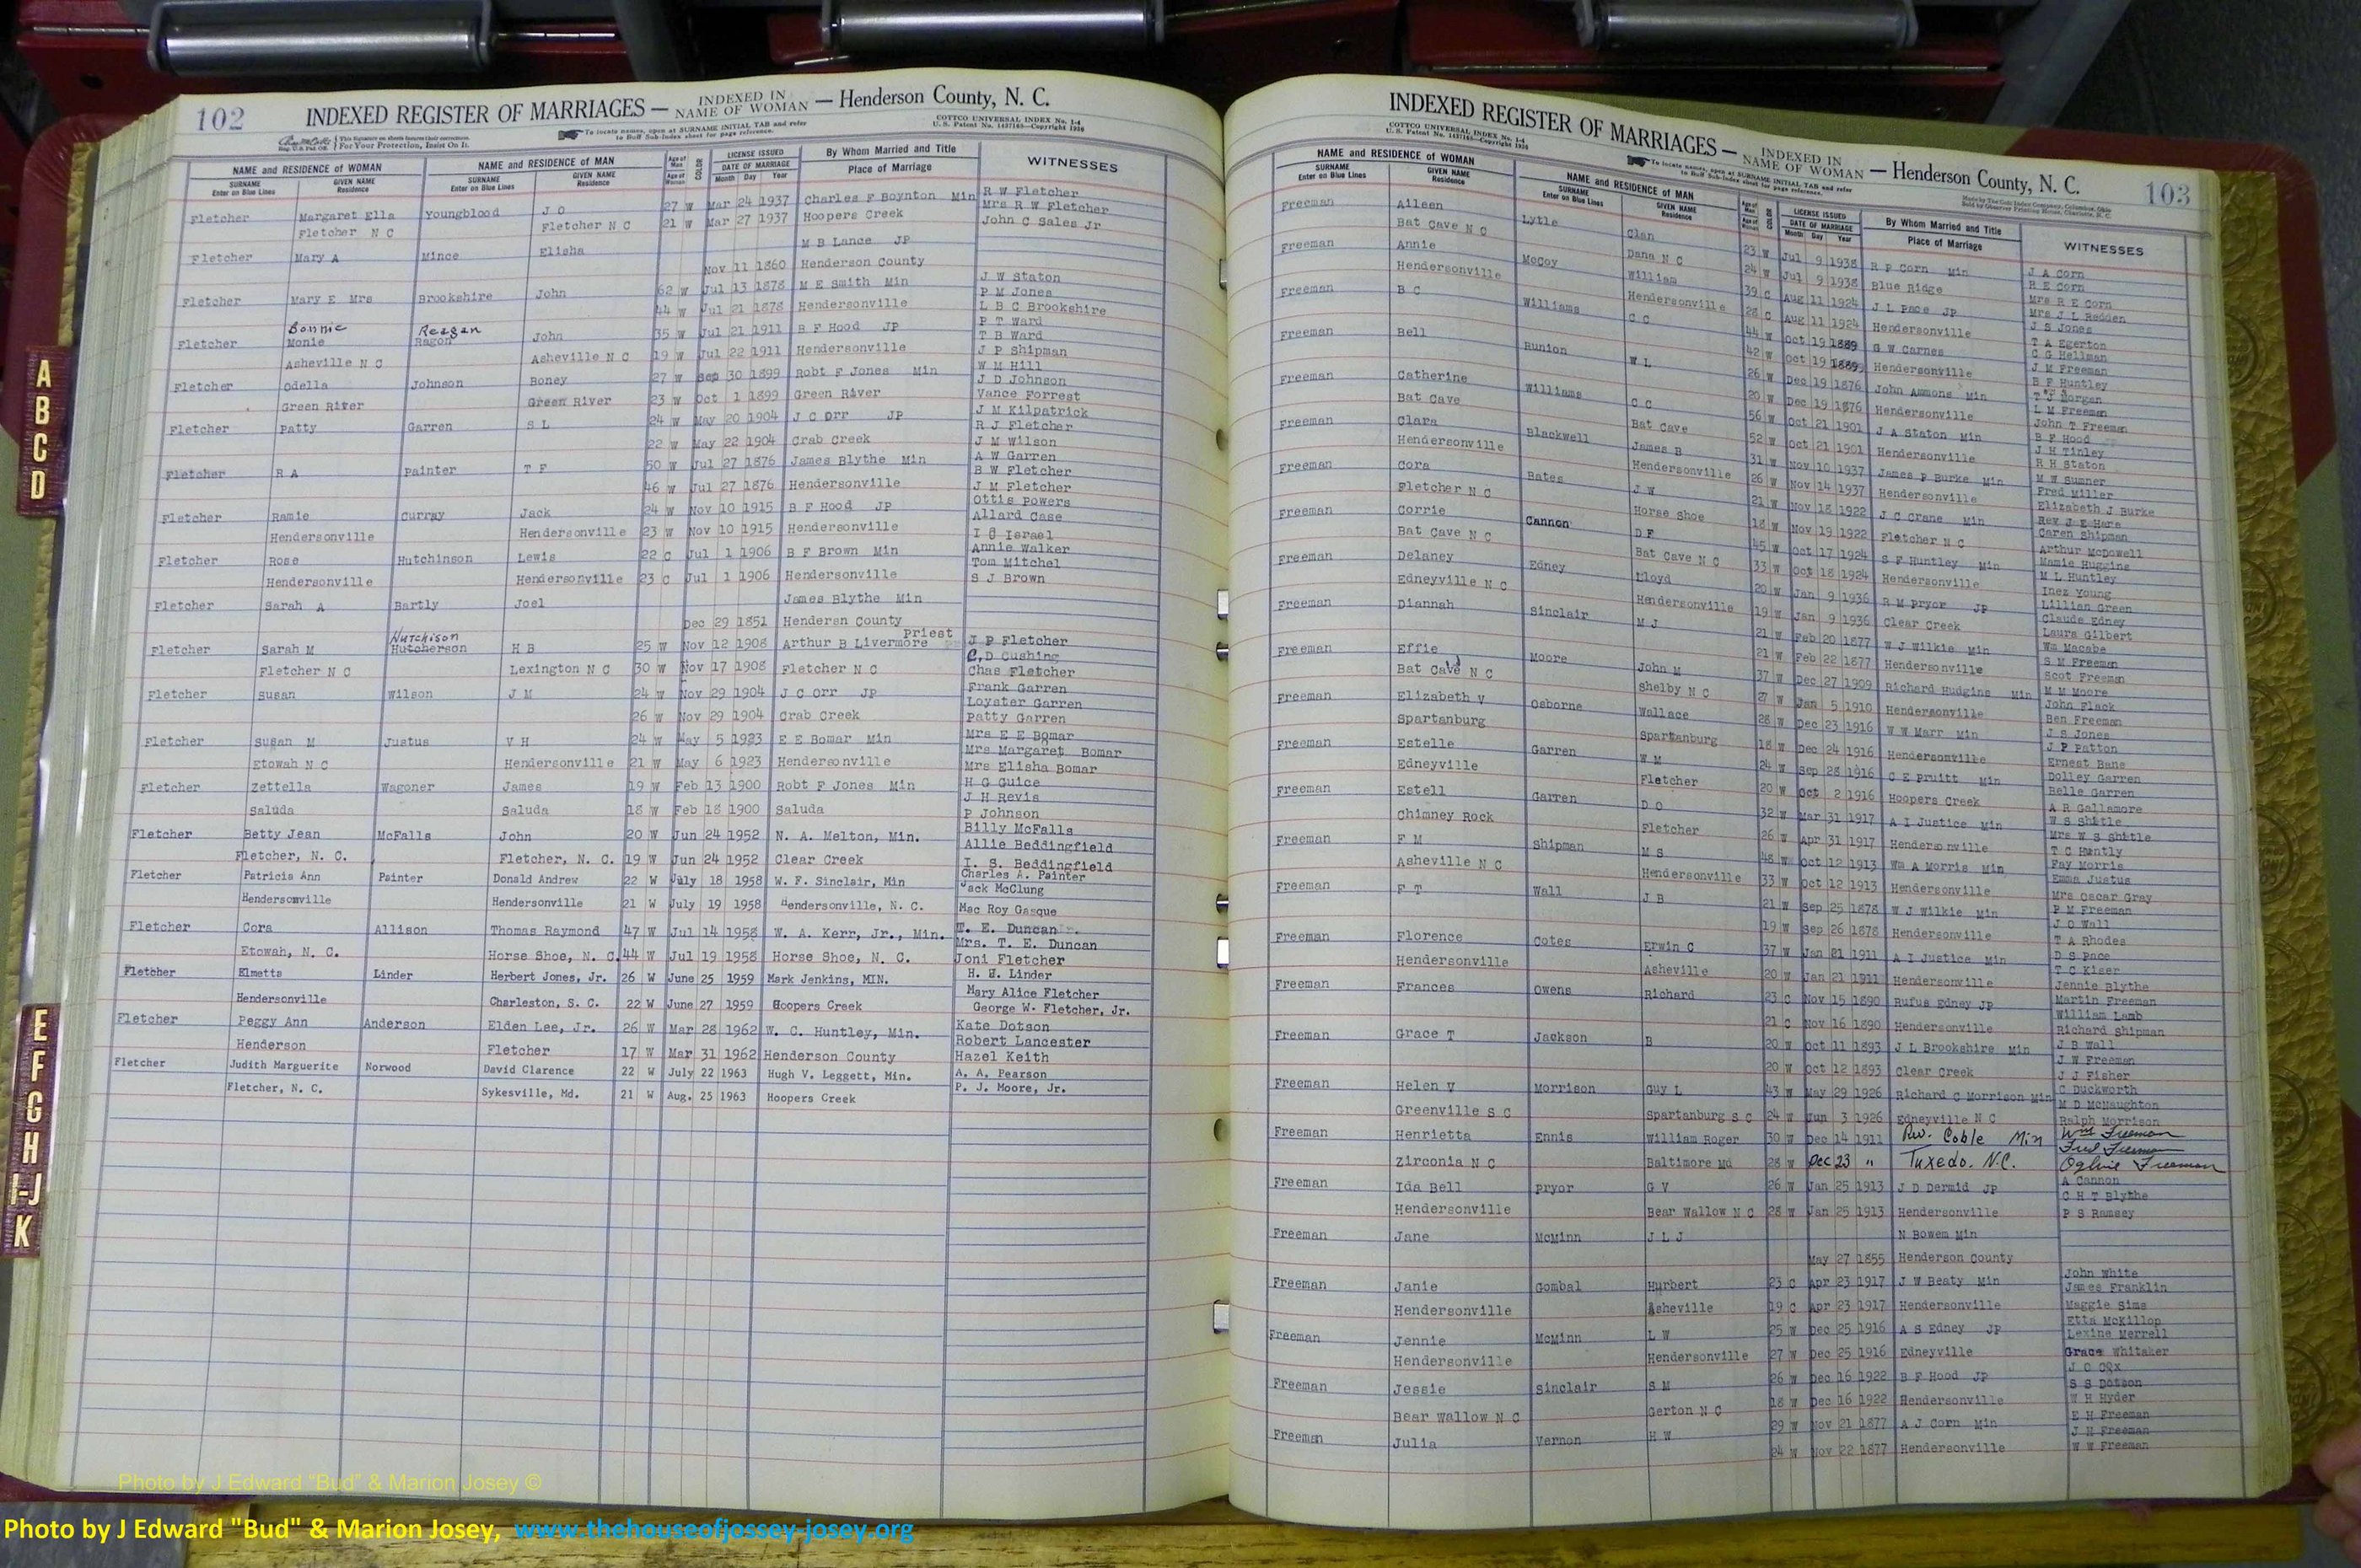 102
INDEXED REGISTER OF MARRIAGES — INDEXED IN NAME OF WOMAN — Henderson County, N. C.
This Signature on sheets insures their correctness. For Your Protection, Insist On It.
To locate names, open at SURNAME INITIAL TAB and refer to Buff Sub-Index sheet for page reference.
COTTCO UNIVERSAL INDEX No. 1-4
U. S. Patent No. 1437165—Copyright 1936
NAME and RESIDENCE OF WOMAN NAME and RESIDENCE OF MAN Age of Man COLOR LICENSE ISSUED By Whom Married and Title WITNESSES
SURNAME Enter on Blue Lines GIVEN NAME Residence SURNAME Enter on Blue Lines GIVEN NAME Residence Age of Woman DATE OF MARRIAGE Month Day Year Place of Marriage
Fletcher Margaret Ella Youngblood J O 27 W Mar 24 1937 Charles F Boynton Min R W Fletcher
Mrs R W Fletcher
Fletcher N C Fletcher N C 21 W Mar 27 1937 Hoopers Creek John C Sales Jr
Fletcher Mary A Mince Elisha M B Lance JP
Nov 11 1860 Henderson County
Fletcher Mary E Mrs Brookshire John 62 W Jul 13 1878 M E Smith Min J W Staton
P M Jones
44 W Jul 21 1878 Hendersonville L B C Brookshire
Bonnie Reagan
Fletcher Monie Ragon John 35 W Jul 21 1911 B F Hood JP P T Ward
T B Ward
Asheville N C Asheville N C 19 W Jul 22 1911 Hendersonville J P Shipman
Fletcher Odella Johnson Boney 27 W Sep 30 1899 Robt F Jones Min W M Hill
J D Johnson
Green River Green River 23 W Oct 1 1899 Green River Vance Forrest
Fletcher Patty Garren S L 24 W May 20 1904 J C Orr JP J M Kilpatrick
R J Fletcher
22 W May 22 1904 Crab Creek J M Wilson
Fletcher R A Painter T F 50 W Jul 27 1876 James Blythe Min A W Garren
B W Fletcher
46 W Jul 27 1876 Hendersonville J M Fletcher
Fletcher Ramie Curray Jack 24 W Nov 10 1915 B F Hood JP Ottis Powers
Allard Case
Hendersonville Hendersonville 23 W Nov 10 1915 Hendersonville Israel
Fletcher Rose Hutchinson Lewis 22 C Jul 1 1906 B F Brown Min Annie Walker
Tom Mitchel
Hendersonville Hendersonville 23 C Jul 1 1906 Hendersonville S J Brown
Fletcher Sarah A Bartly Joel James Blythe Min
Dec 29 1851 Hendersn County
Hutchison Priest
Fletcher Sarah M Hutcherson H B 25 W Nov 12 1908 Arthur B Livermore J P Fletcher
C D Cushing
Fletcher N C Lexington N C 30 W Nov 17 1908 Fletcher N C Chas Fletcher
Fletcher Susan Wilson J M 24 W Nov 29 1904 J C Orr JP Frank Garren
Loyster Garren
26 W Nov 29 1904 Crab Creek Patty Garren
Fletcher Susan M Justus V H 24 W May 5 1923 E E Bomar Min Mrs E E Bomar
Mrs Margaret Bomar
Etowah N C Hendersonville 21 W May 6 1923 Hendersonville Mrs Elisha Bomar
Fletcher Zettella Wagoner James 19 W Feb 13 1900 Robt F Jones Min H G Guice
J H Revis
Saluda Saluda 18 W Feb 18 1900 Saluda P Johnson
Fletcher Betty Jean McFalls John 20 W Jun 24 1952 N. A. Melton, Min. Billy McFalls
Allie Beddingfield
Fletcher, N. C. Fletcher, N. C. 19 W Jun 24 1952 Clear Creek I. S. Beddingfield
Fletcher Patricia Ann Painter Donald Andrew 22 W July 18 1958 W. F. Sinclair, Min Charles A. Painter
Jack McClung
Hendersonville Hendersonville 21 W July 19 1958 Hendersonville, N. C. Mac Roy Gasque
Fletcher Cora Allison Thomas Raymond 47 W Jul 14 1958 W. A. Kerr, Jr., Min. T. E. Duncan
Mrs. T. E. Duncan
Etowah, N. C. Horse Shoe, N. C. 44 W Jul 19 1958 Horse Shoe, N. C. Joni Fletcher
Fletcher Elmetta Linder Herbert Jones, Jr. 26 W June 25 1959 Mark Jenkins, MIN. H. H. Linder
Mary Alice Fletcher
Hendersonville Charleston, S. C. 22 W June 27 1959 Hoopers Creek George W. Fletcher, Jr.
Fletcher Peggy Ann Anderson Elden Lee, Jr. 26 W Mar 28 1962 W. C. Huntley, Min. Kate Dotson
Robert Lancester
Henderson Fletcher 17 W Mar 31 1962 Henderson County Hazel Keith
Fletcher Judith Marguerite Norwood David Clarence 22 W July 22 1963 Hugh V. Leggett, Min. A. A. Pearson
Fletcher, N. C. Sykesville, Md. 21 W Aug. 25 1963 Hoopers Creek P. J. Moore, Jr.
INDEXED REGISTER OF MARRIAGES — INDEXED IN NAME OF WOMAN — Henderson County, N. C.
103
COTTCO UNIVERSAL INDEX No. 1-4
U. S. Patent No. 1437165—Copyright 1936
To locate names, open at SURNAME INITIAL TAB and refer to Buff Sub-Index sheet for page reference.
NAME and RESIDENCE OF WOMAN NAME and RESIDENCE OF MAN LICENSE ISSUED By Whom Married and Title WITNESSES
SURNAME Enter on Blue Lines GIVEN NAME Residence SURNAME Enter on Blue Lines GIVEN NAME Residence DATE OF MARRIAGE Month Day Year Place of Marriage
Freeman Aileen Lytle Clan 23 W Jul 9 1938 R P Corn Min J A Corn
R E Corn
Bat Cave N C Dana N C 24 W Jul 9 1938 Blue Ridge Mrs R E Corn
Freeman Annie McCoy William 39 C Aug 11 1924 J L Pace JP Mrs J L Redden
J S Jones
Hendersonville Hendersonville 28 C Aug 11 1924 Hendersonville T A Egerton
Freeman B C Williams C C 44 W Oct 19 1889 G W Carnes C G Hellman
J M Freeman
42 W Oct 19 1889 Hendersonville B F Huntley
Freeman Bell Runion W L 26 W Dec 19 1876 John Ammons Min Morgan
L M Freeman
20 W Dec 19 1876 Hendersonville John T Freeman
Freeman Catherine Williams C C 56 W Oct 21 1901 J A Staton Min B F Hood
J H Tinley
Bat Cave Bat Cave 52 W Oct 21 1901 Hendersonville R H Staton
Freeman Clara Blackwell James B 31 W Nov 10 1937 James P Burke Min M W Sumner
Fred Miller
Hendersonville Hendersonville 26 W Nov 14 1937 Hendersonville Elizabeth J Burke
Freeman Cora Bates J W 21 W Nov 18 1922 J C Crane Min Rev J E Hare
Caren Shipman
Fletcher N C Horse Shoe 18 W Nov 19 1922 Fletcher N C Arthur McDowell
Freeman Corrie Cannon D F 45 W Oct 17 1924 S F Huntley Min Mamie Huggins
M L Huntley
Bat Cave N C Bat Cave N C 33 W Oct 18 1924 Hendersonville Inez Young
Freeman Delaney Edney Lloyd 20 W Jan 9 1936 R M Pryor JP Lillian Green
Claude Edney
Edneyville N C Hendersonville 19 W Jan 9 1936 Clear Creek Laura Gilbert
Freeman Diannah Sinclair M J 21 W Feb 20 1877 W J Wilkie Min Wm Macabe
S M Freeman
21 W Feb 22 1877 Hendersonville Scot Freeman
Freeman Effie Moore John M 37 W Dec 27 1909 Richard Hudgins Min M M Moore
John Flack
Bat Cave N C Shelby N C 27 W Jan 5 1910 Hendersonville Ben Freeman
Freeman Elizabeth V Osborne Wallace 28 W Dec 23 1916 W W Marr Min J S Jones
J P Patton
Spartanburg Spartanburg 18 W Dec 24 1916 Hendersonville Ernest Bane
Freeman Estelle Garren W M 24 W Sep 28 1916 C E Pruitt Min Dolley Garren
Belle Garren
Edneyville Fletcher 20 W Oct 2 1916 Hoopers Creek A R Gallamore
Freeman Estell Garren D O 32 W Mar 31 1917 A I Justice Min W S Shitle
Mrs W S Shitle
Chimney Rock Fletcher 26 W Apr 31 1917 Hendersonville T C Huntly
Freeman F M Shipman M S 48 W Oct 12 1913 Wm A Morris Min Fay Morris
Emma Justus
Asheville N C Hendersonville 33 W Oct 12 1913 Hendersonville Mrs Oscar Gray
Freeman F T Wall J B 21 W Sep 25 1878 W J Wilkie Min P M Freeman
J O Wall
19 W Sep 26 1878 Hendersonville T A Rhodes
Freeman Florence Cotes Erwin C 37 W Jan 21 1911 A I Justice Min D S Pace
T C Kiser
Hendersonville Asheville 20 W Jan 21 1911 Hendersonville Jennie Blythe
Freeman Frances Owens Richard 23 C Nov 15 1890 Rufus Edney JP Martin Freeman
William Lamb
21 C Nov 16 1890 Hendersonville Richard Shipman
Freeman Grace T Jackson B 20 W Oct 11 1893 J L Brookshire Min J B Wall
J W Freeman
20 W Oct 12 1893 Clear Creek J J Fisher
Freeman Helen V Morrison Guy L 43 W May 29 1926 Richard C Morrison Min C Duckworth
M D McNaughton
Greenville S C Spartanburg S C 24 W Jun 3 1926 Edneyville N C Ralph Morrison
Freeman Henrietta Ennis William Roger 30 W Dec 14 1911 Rev. Coble Min Wm Freeman
Fred Freeman
Zirconia N C Baltimore Md 28 W Dec 23 " Tuxedo. N.C. Ogilvie Freeman
Freeman Ida Bell Pryor G V 26 W Jan 25 1913 J D Dermid JP A Cannon
C H T Blythe
Hendersonville Bear Wallow N C 28 W Jan 25 1913 Hendersonville P S Ramsey
Freeman Jane McMinn J L J N Bowem Min
May 27 1855 Henderson County
Freeman Janie Gombal Hurbert 23 C Apr 23 1917 J W Beaty Min John White
James Franklin
Hendersonville Asheville 19 C Apr 23 1917 Hendersonville Maggie Sims
Freeman Jennie McMinn L W 25 W Dec 25 1916 A S Edney JP Etta McKillop
Lexine Merrell
Hendersonville Hendersonville 27 W Dec 25 1916 Edneyville Grace Whitaker
Freeman Jessie Sinclair S M 26 W Dec 16 1922 B F Hood JP J C Cox
S S Dotson
Bear Wallow N C Gerton N C 18 W Dec 16 1922 Hendersonville W H Hyder
Freeman Julia Vernon H W 29 W Nov 21 1877 A J Corn Min E H Freeman
J H Freeman
24 W Nov 22 1877 Hendersonville W W Freeman
A
B
C
D
E
F
G
H
I-J
K
Photo by J Edward "Bud" & Marion Josey ©
Photo by J Edward "Bud" & Marion Josey, www.thehouseofjossey-josey.org